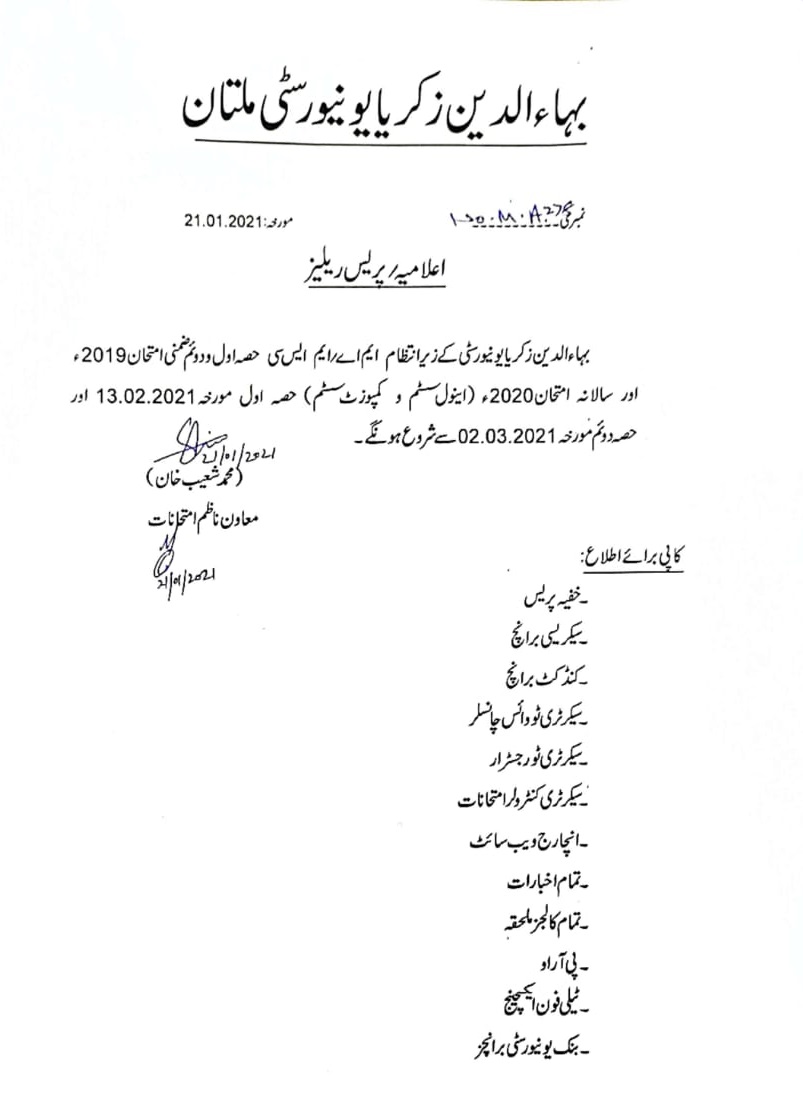 بہاءالدین زکریا یونیورسٹی ملتان
نمبرگمی M.A
مورخہ:21.01.2021
اعلامیہ/پریس ریلیز
بہاءالدین زکریا یونیورسٹی کے زیر انتظام ایم اے/ایم ایس سی حصہ اول و دوئم ضمنی امتحان 2019ء
اور سالانہ امتحان 2020ء (اینول سسٹم و کمپوزٹ سسٹم) حصہ اول مورخہ 13.02.2021 اور
حصہ دوئم مورخہ 02.03.2021 سے شروع ہونگے۔
21/01/2021
(محمد شعیب خان)
معاون ناظم امتحانات
21/01/2021
کاپی برائے اطلاع:
۔خفیہ پریس
۔سیکریسی برانچ
۔کنڈکٹ برانچ
۔سیکرٹری ٹو وائس چانسلر
۔سیکرٹری ٹو رجسٹرار
۔سیکرٹری کنٹرولر امتحانات
۔انچارج ویب سائٹ
۔تمام اخبارات
۔تمام کالجز ملحقہ
۔پی آر او
۔ٹیلی فون ایکسچینج
۔بنک یونیورسٹی برانچز